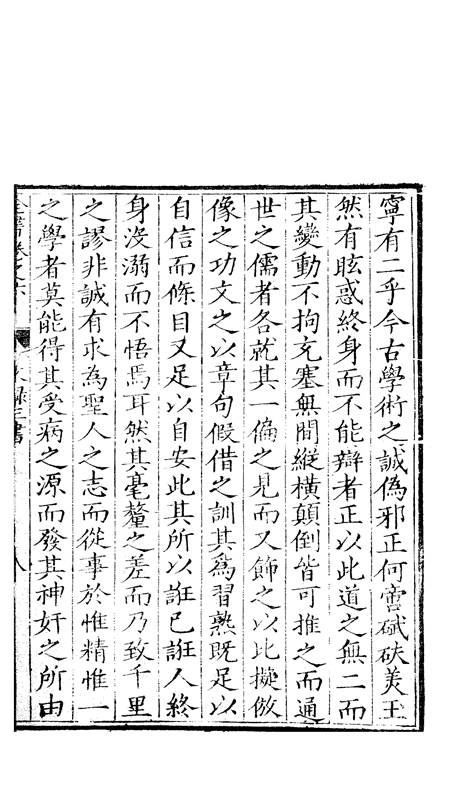 寧有二乎今古學術之誠偽邪正何啻碔砆美玉
然有眩惑終身而不能辯者正以此道之無二而
其變動不拘充塞無間縱橫顛倒皆可推之而通
世之儒者各就其一偏之見而又飾之以比擬倣
像之功文之以章句假借之訓其為習熟既足以
自信而條目又足以自安此其所以誑己誑人終
身沒溺而不悟焉耳然其毫釐之差而乃致千里
之謬非誠有求為聖人之志而從事於惟精惟一
之學者莫能得其受病之源而發其神奸之所由
全書卷之六
文錄三書
八